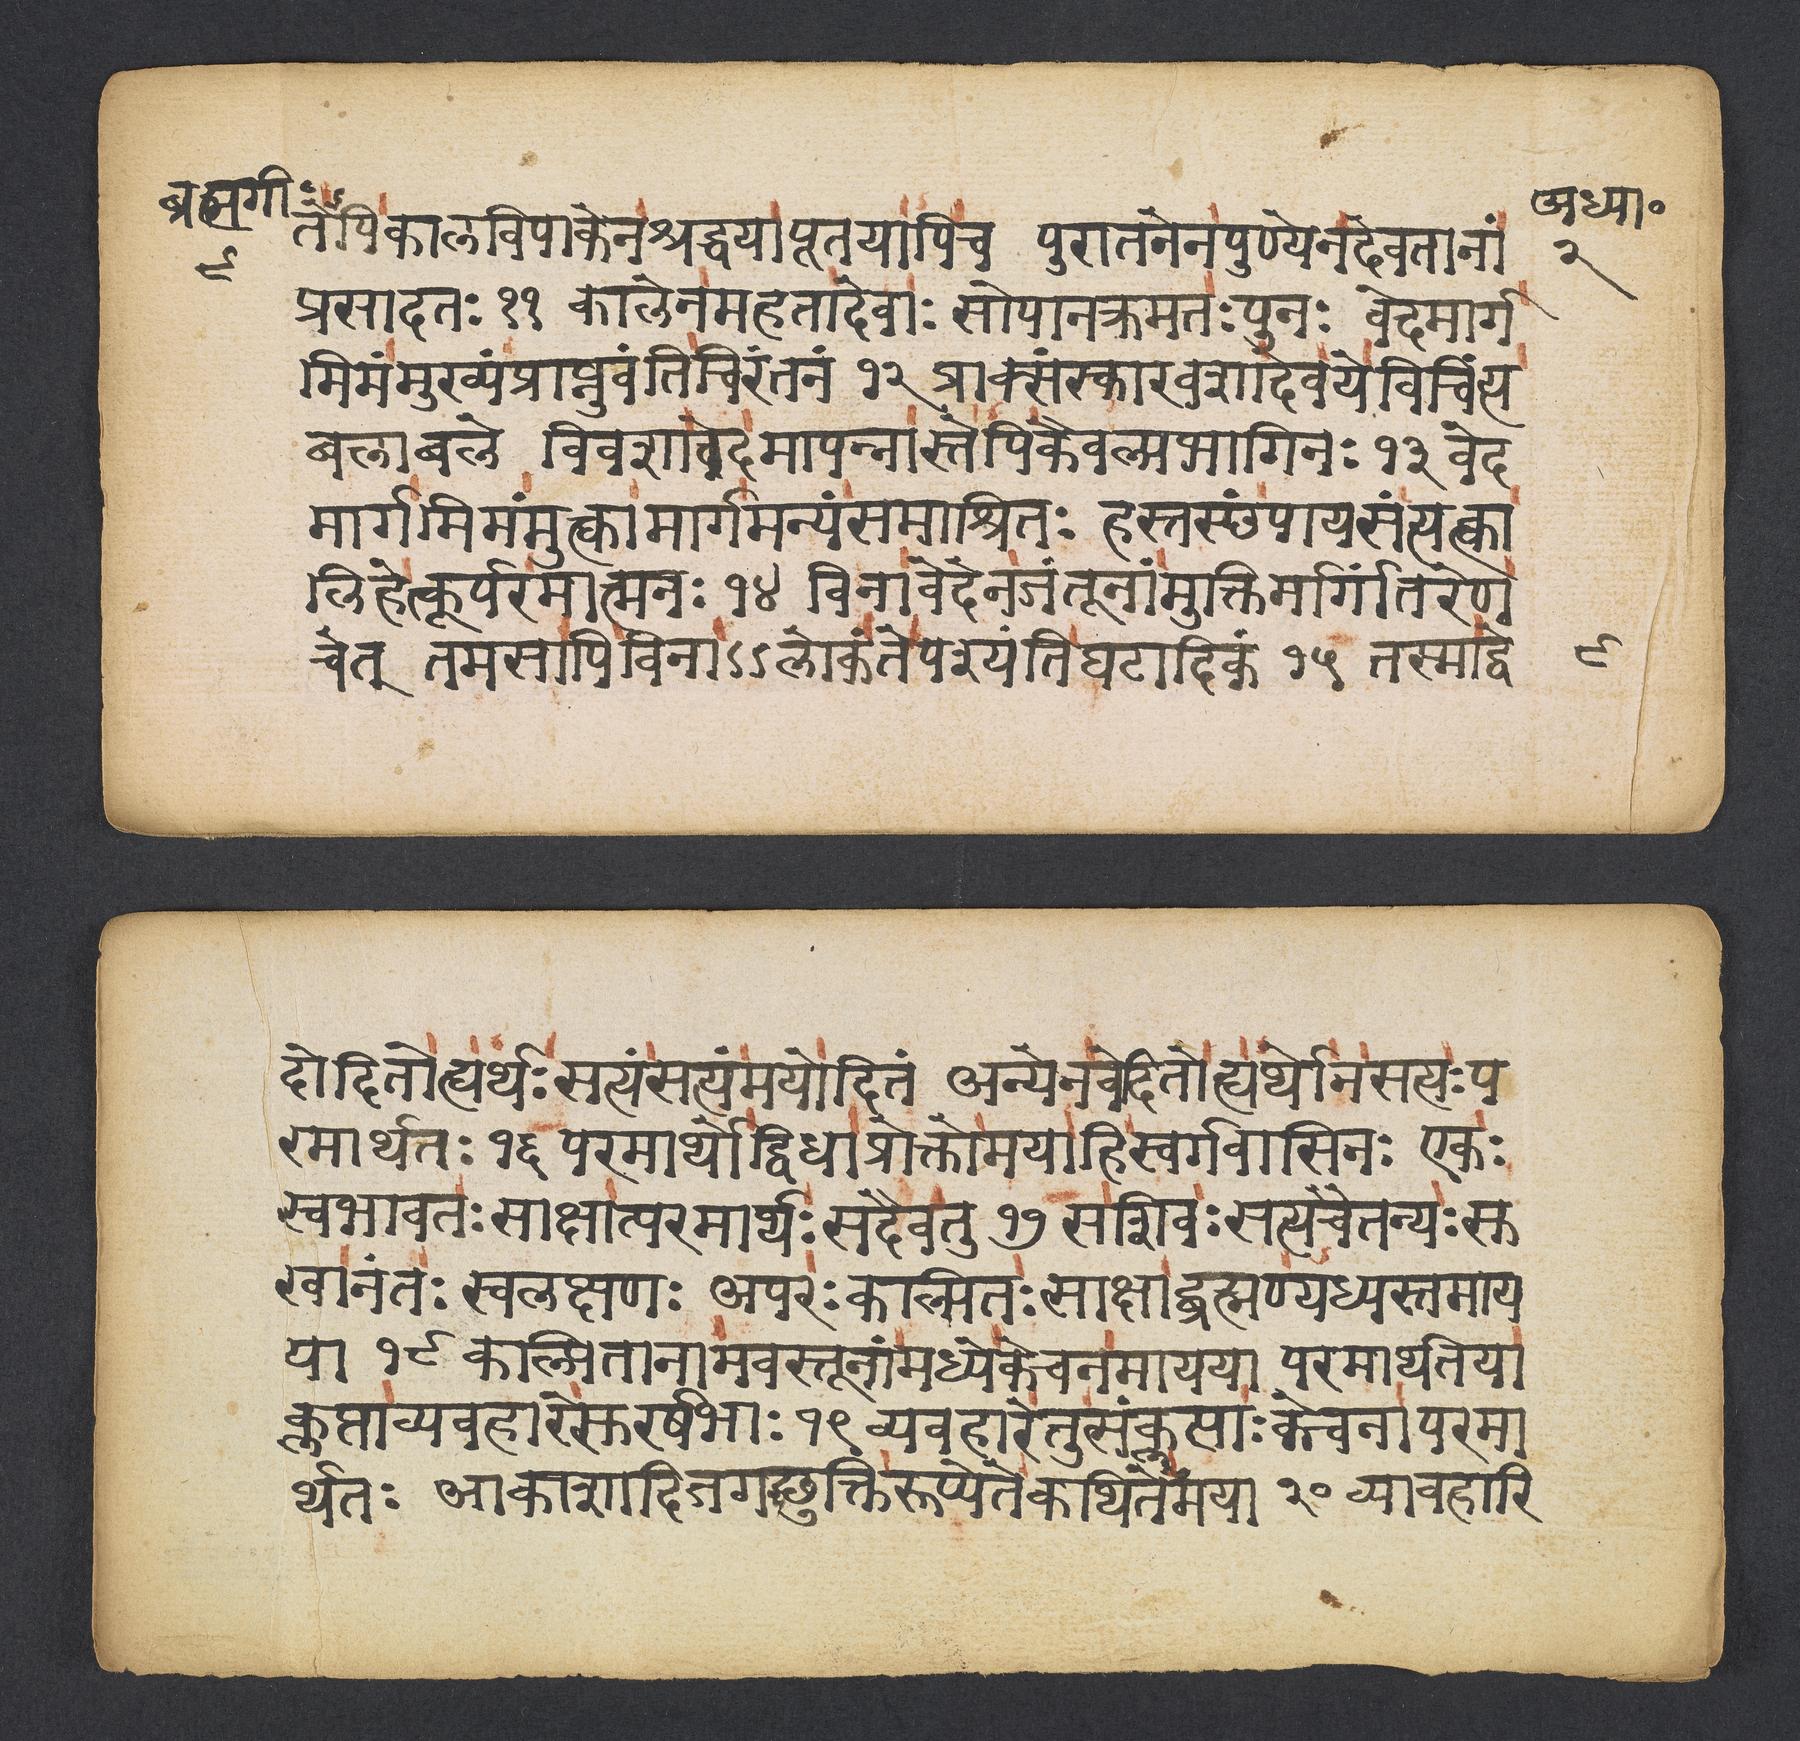 ब्रह्मगी॰
९
अध्या॰
२
तेपिकालविपाकेनश्रद्धयापूतयापिच पुरातनेनपुण्येनदेवतानां
प्रसादतः ११ कालेनमहतादेवाः सोपानक्रमतःपुनः वेदमार्ग
मिमंमुख्यंप्राप्नुवंतिचिरंतनं १२ प्राक्संस्कारवशादेवयेविचिंत्य
बलाबले विवशावेदमापन्नास्तेपिकैवल्यभागिनः १३ वेद
मार्गमिमंमुत्क्वामार्गमन्यंसमाश्रितः हस्तस्छंपायसंत्यत्क्वा
लिहेत्कूर्परमात्मनः १४ विनावेदेनजंतूनांमुक्तिर्मार्गांतरेण
चेत् तमसापिविनाऽऽलोकंतेपश्यंतिघटादिकं १५ तस्माद्वे
९
दोदितोह्यर्थःसत्यंसत्यंमयोदितं अन्येनवेदितोह्यर्थोनसत्यःप
रमार्थतः १६ परमार्थोद्विधाप्रोक्तोमयाहिस्वर्गवासिनः एकः
स्वभावतःसाक्षात्परमार्थःसदैवतु १७ सशिवःसत्यचैतन्यःसु
खानंतः स्वलक्षणः अपरःकाल्पितःसाक्षाद्ब्रह्मण्यध्यस्तमाय
या १८ काल्पितानामवस्तूनांमध्येकेचनमायया परमार्थतया
कॢप्ताव्यवहारेसुरर्षभाः १९ व्यवहारेतुसंकॢप्ताःकेचनापरमा
र्थतः आकाशादिजगच्छुक्तिरूप्येतेकथितेमया २० व्यावहारि